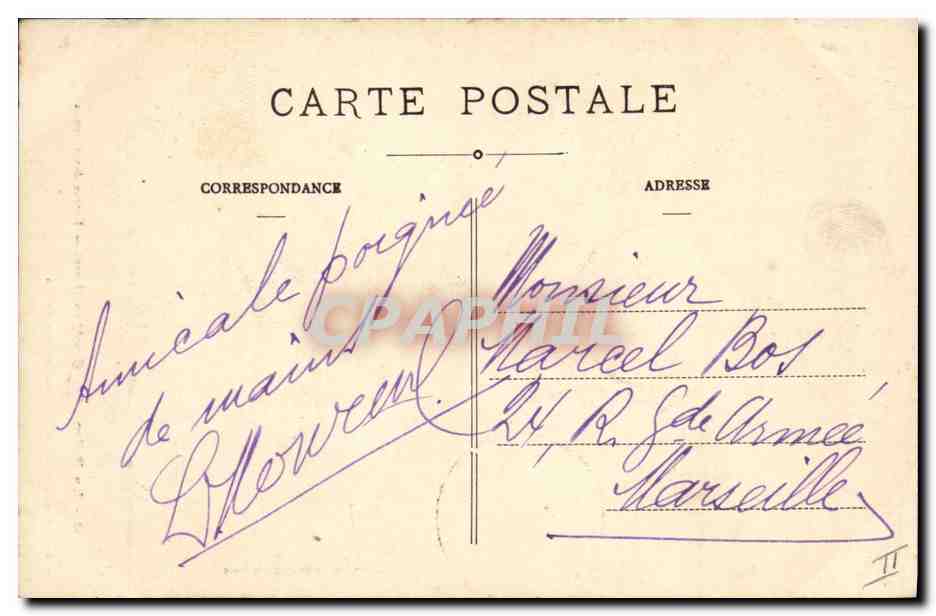 CARTE POSTALE
CORRESPONDANCE
Amicale poignée
de mains
ADRESSE
Monsieur
Marcel Bos
24, R. Gde Armée
Marseille
II
CPAPHIL